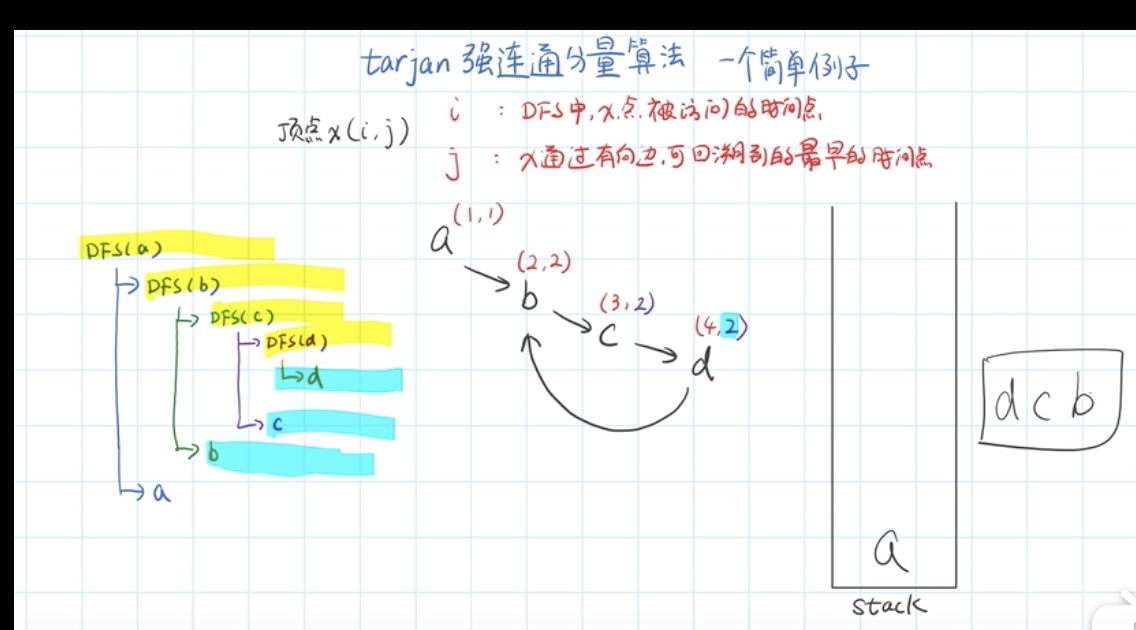 tarjan 强连通分量算法 一个简单例子
顶点x(i,j)
i : DFS中,x点.被访问的时间点
j : x通过有向边,可回溯到的最早的时间点
DFS(a)
DFS(b)
DFS(c)
DFS(d)
d
c
b
a
a (1,1)
b (2,2)
c (3,2)
d (4,2)
a
stack
d c b